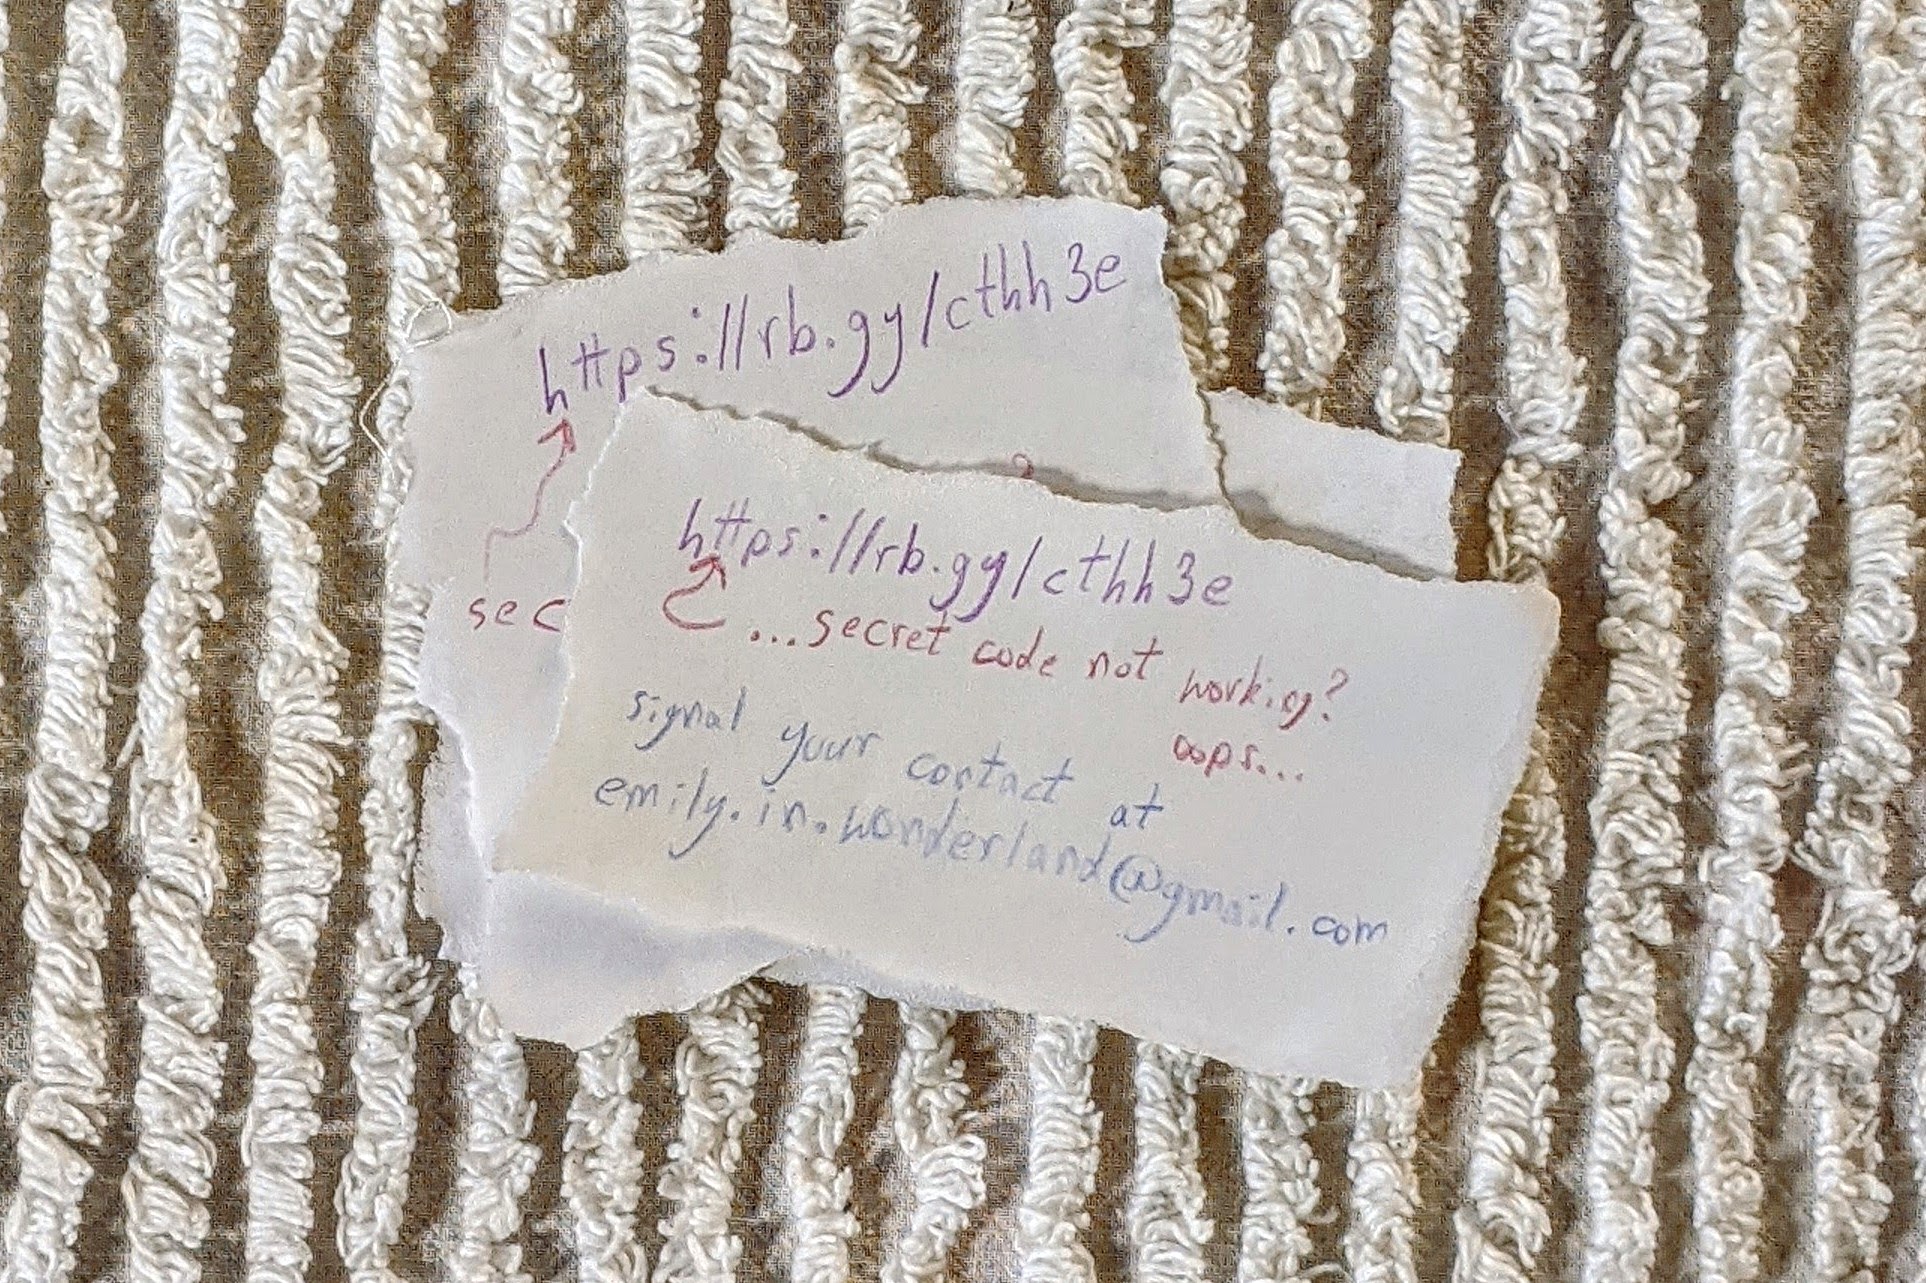 https://rb.gy/cthh3e
sec
https://rb.gy/cthh3e
...secret code not working?
oops...
signal your contact at
emily.in.wonderland@gmail.com